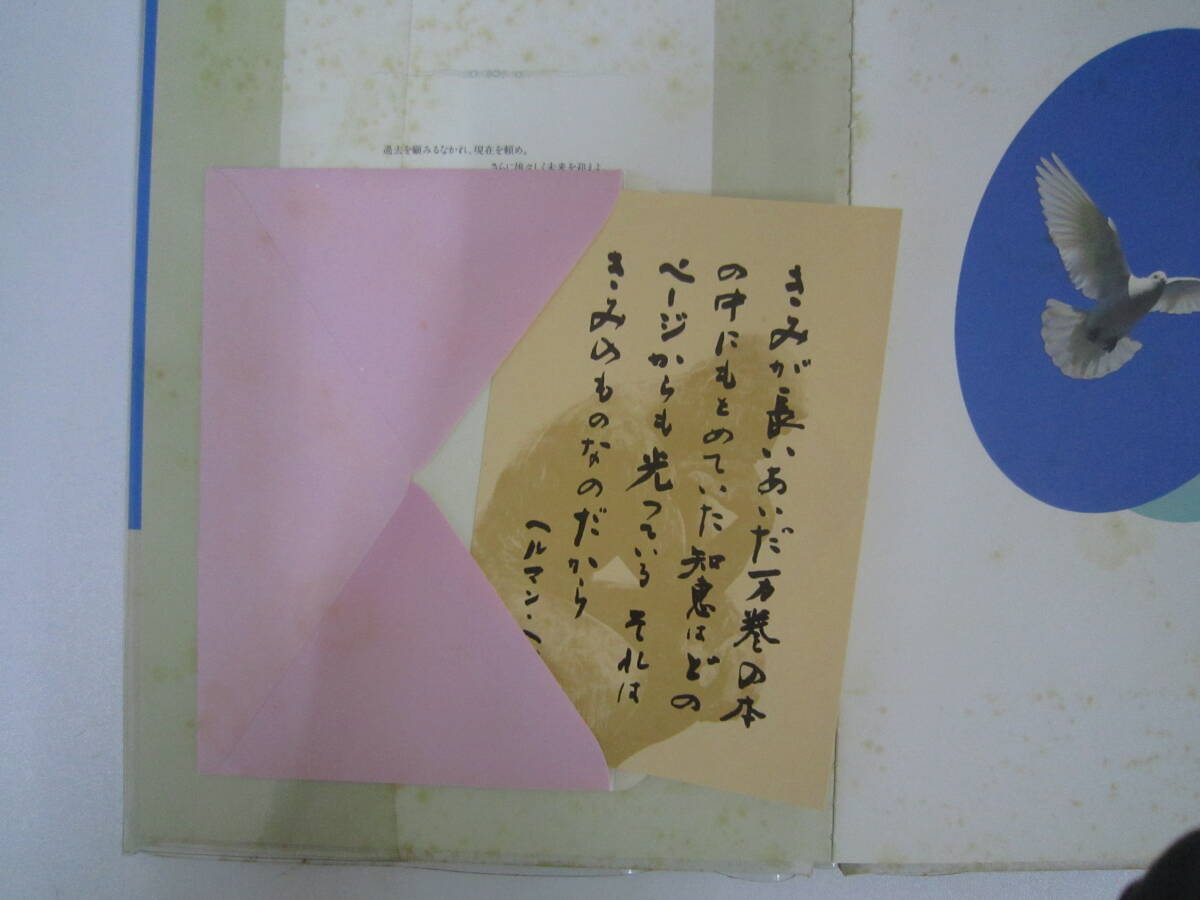 過去を顧みるなかれ、現在を頼め。
さらに雄々しく未来を迎えよ
きみが長いあいだ万巻の本
の中にもとめていた知恵はどの
ページからも光っている それは
きみのものなのだから
ヘルマン・ヘ